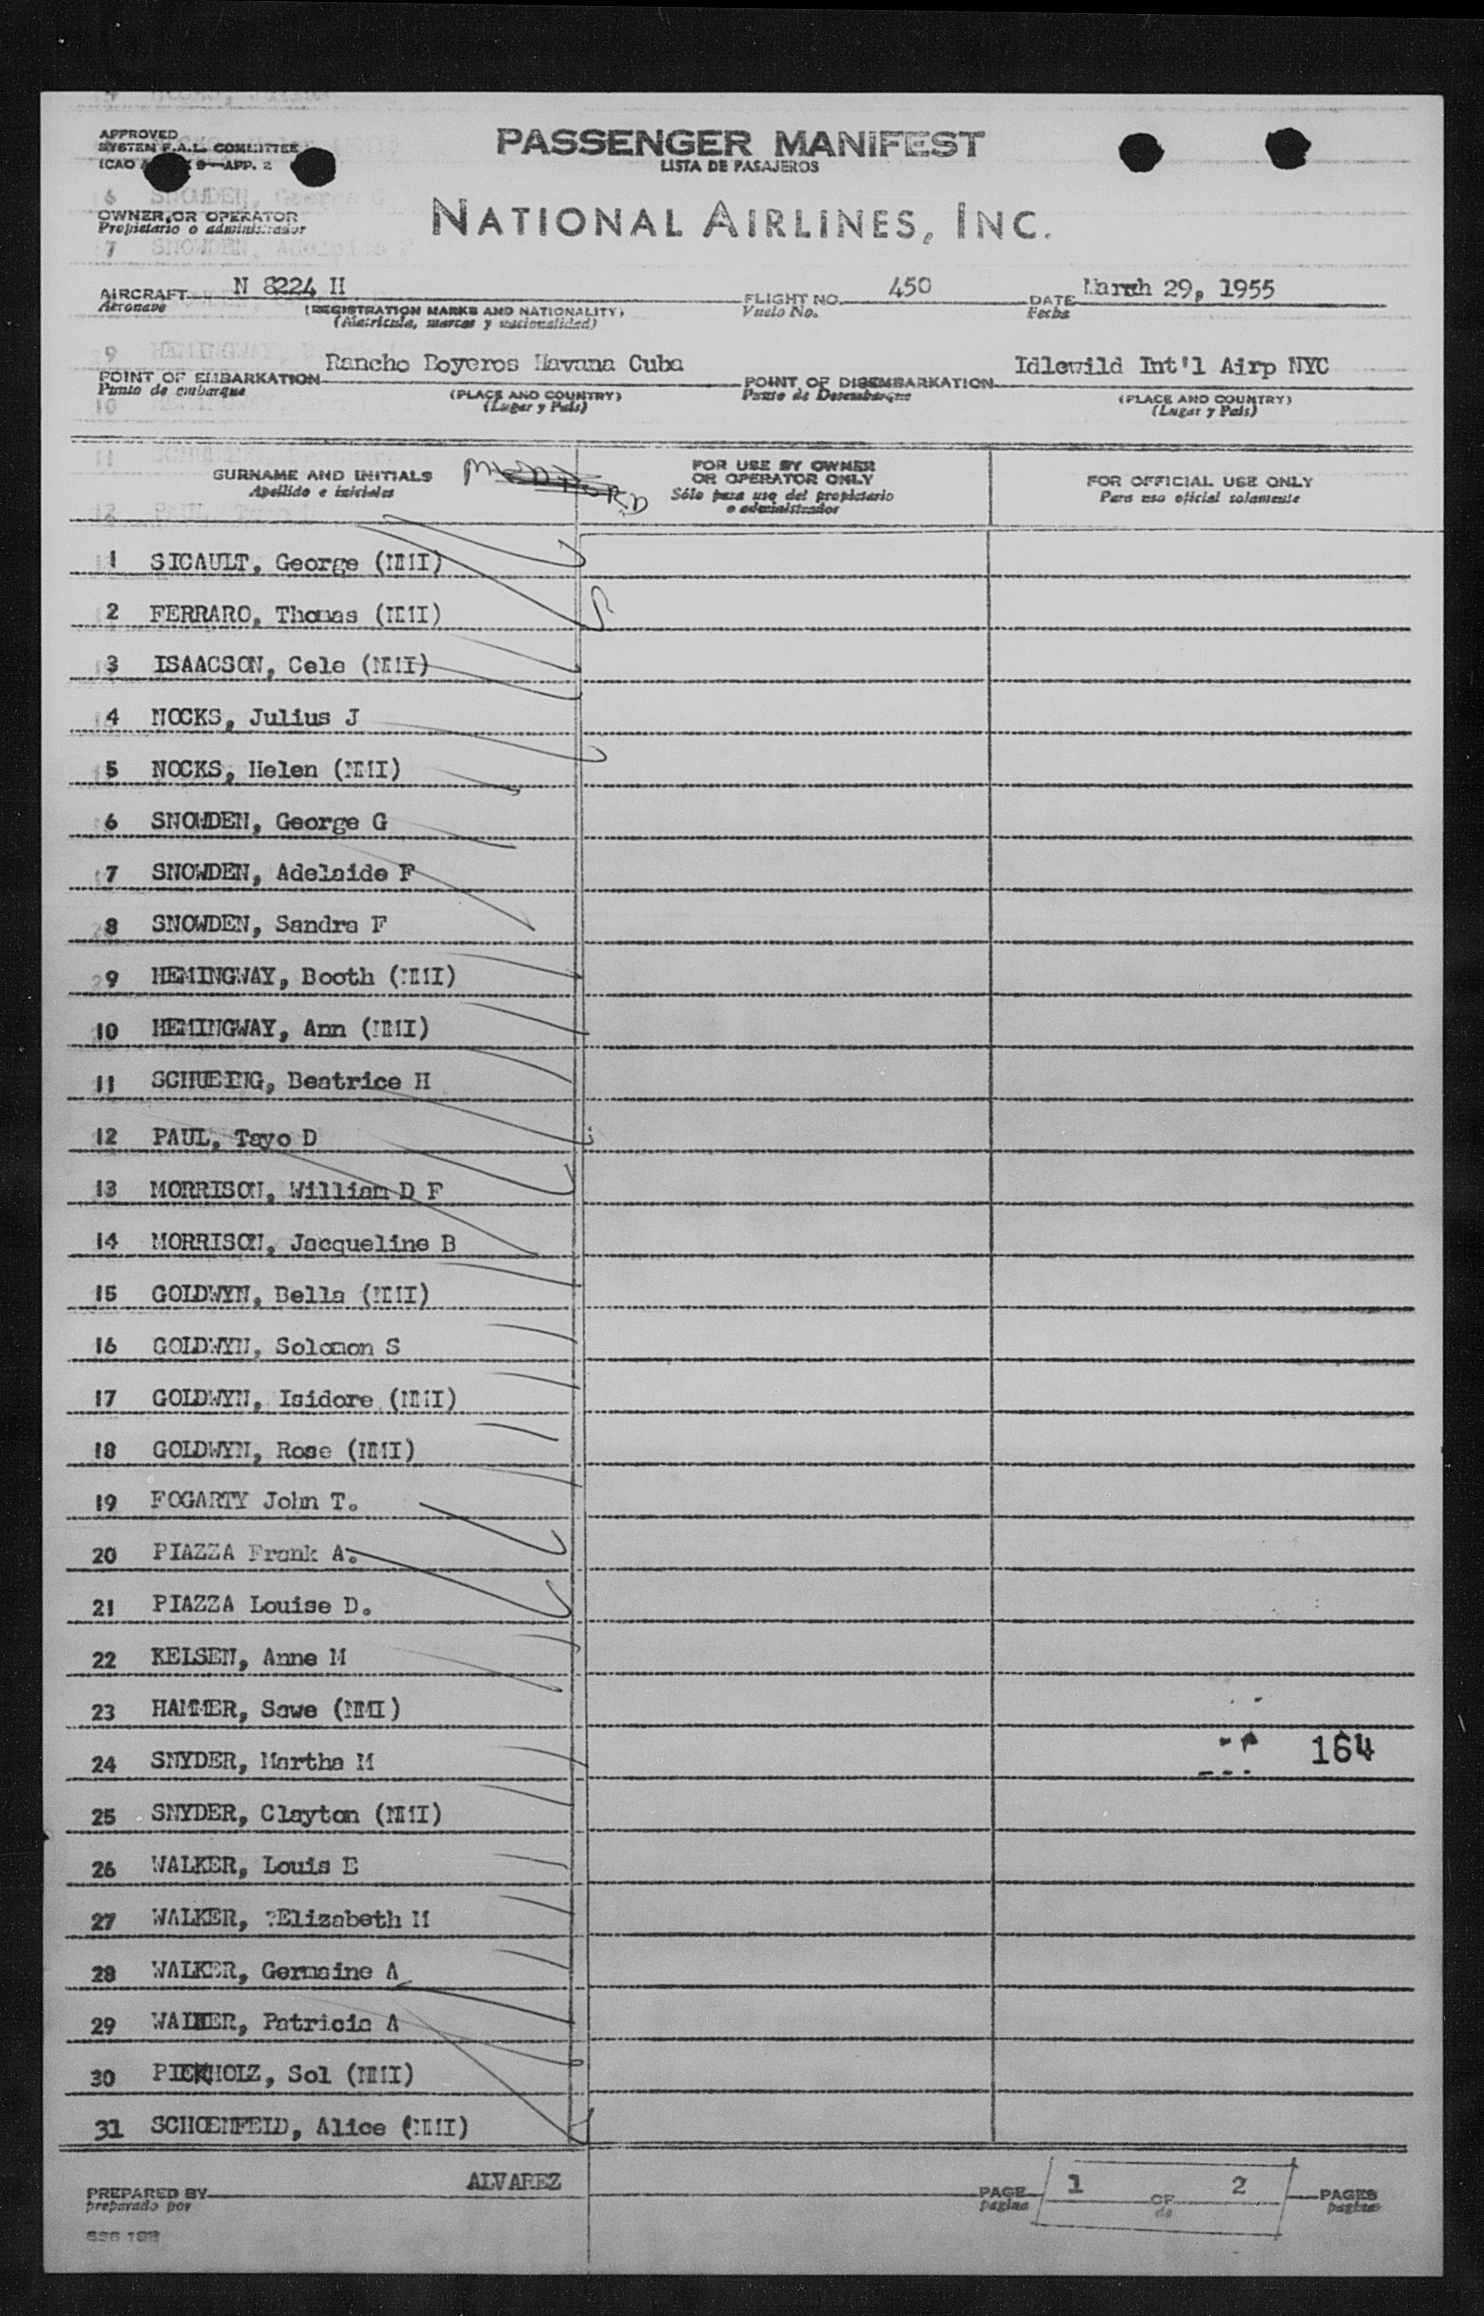 APPROVED
SYSTEM F.A.L. COMMITTEE
ICAO 9—APP. 2
PASSENGER MANIFEST
LISTA DE PASAJEROS
OWNER OR OPERATOR
Propietario o administrador
NATIONAL AIRLINES, INC.
AIRCRAFT N 8224 H FLIGHT NO. 450 DATE March 29, 1955
Aeronave (REGISTRATION MARKS AND NATIONALITY) Vuelo No. Fecha
(Matricula, marcas y nacionalidad)
POINT OF EMBARKATION Rancho Boyeros Havana Cuba POINT OF DISEMBARKATION Idlewild Int'l Airp NYC
Punto de embarque (PLACE AND COUNTRY) Punto de Desembarque (PLACE AND COUNTRY)
(Lugar y Pais) (Lugar y Pais)
SURNAME AND INITIALS FOR USE BY OWNER OR OPERATOR ONLY FOR OFFICIAL USE ONLY
Apellido e iniciales Sólo para uso del propietario o administrador Para uso oficial solamente
1 SICAULT, George (NMI)
2 FERRARO, Thomas (NMI)
3 ISAACSON, Cele (NMI)
4 NOCKS, Julius J
5 NOCKS, Helen (NMI)
6 SNOWDEN, George G
7 SNOWDEN, Adelaide F
8 SNOWDEN, Sandra F
9 HEMINGWAY, Booth (NMI)
10 HEMINGWAY, Ann (NMI)
11 Beatrice H
12 PAUL, Tayo D
13 MORRISON, William D F
14 MORRISON, Jacqueline B
15 GOLDWYN, Bella (NMI)
16 GOLDWYN, Solomon S
17 GOLDWYN, Isidore (NMI)
18 GOLDWYN, Rose (NMI)
19 FOGARTY John T.
20 PIAZZA Frank A.
21 PIAZZA Louise D.
22 KELSEN, Anne M
23 HAMMER, Sawe (NMI)
24 SNYDER, Martha M 164
25 SNYDER, Clayton (NMI)
26 WALKER, Louis E
27 WALKER, Elizabeth M
28 WALKER, Germaine A
29 WALKER, Patricia A
30 PICKHOLZ, Sol (NMI)
31 SCHOENFELD, Alice (NMI)
PREPARED BY ALVAREZ PAGE 1 OF 2 PAGES
preparado por pagina de paginas